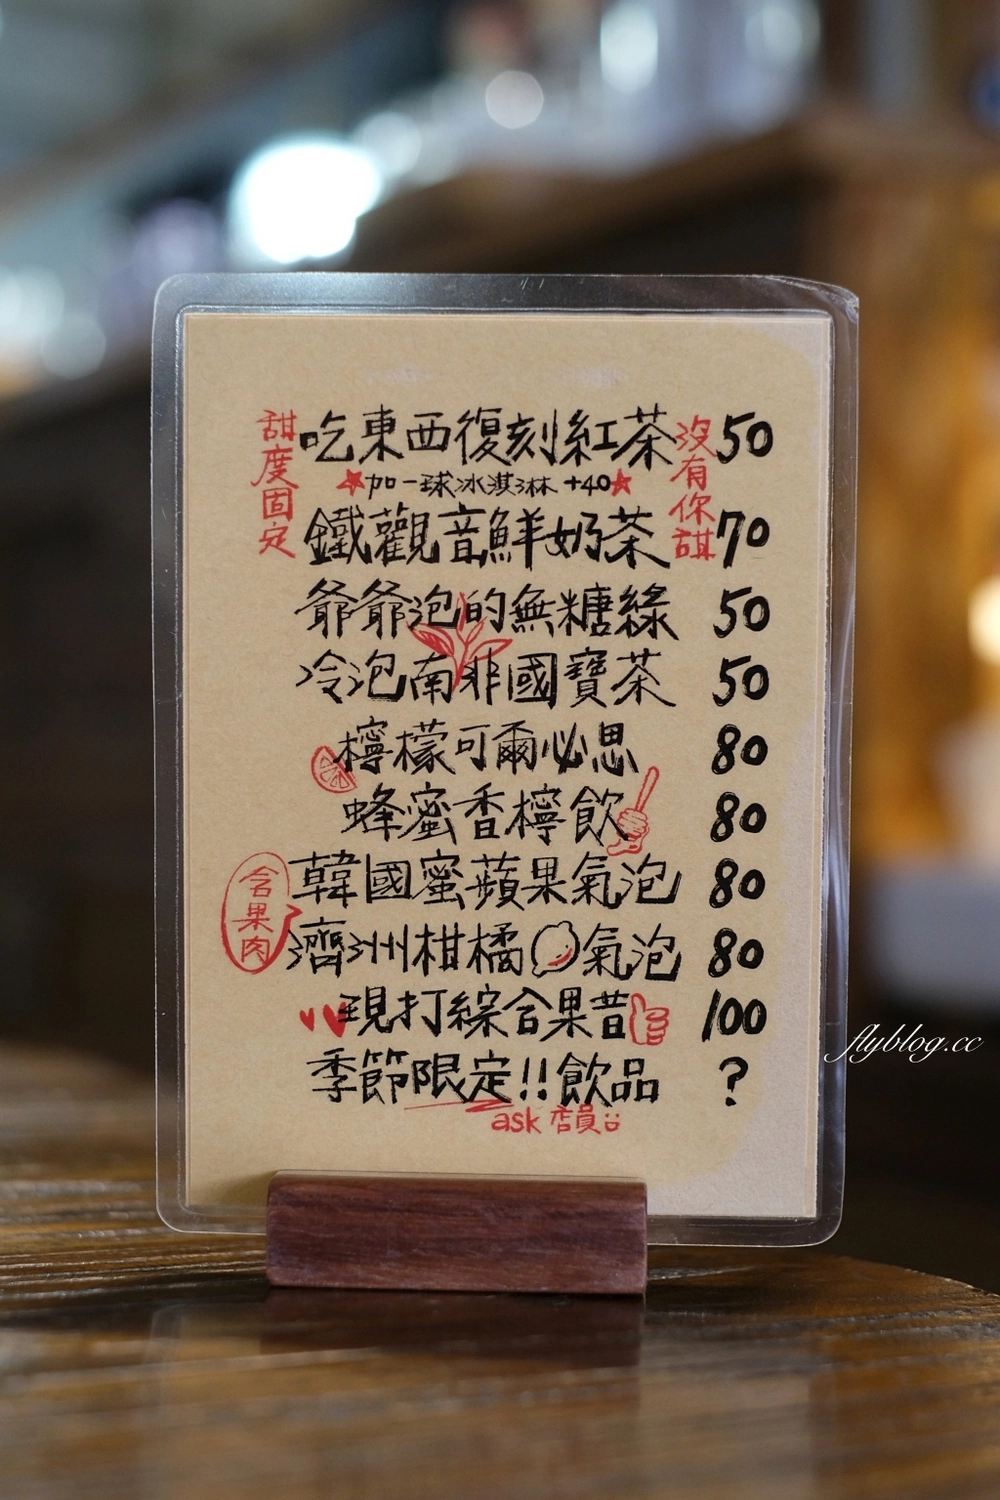 甜度固定
吃東西復刻紅茶 50
沒有你甜
加一球冰淇淋 +40
鐵觀音鮮奶茶 70
爺爺泡的無糖綠 50
冷泡南非國寶茶 50
檸檬可爾必思 80
蜂蜜香檸飲 80
含果肉
韓國蜜蘋果氣泡 80
濟洲柑橘氣泡 80
現打綜合果昔 100
季節限定!!飲品 ?
ask 店員
flyblog.cc